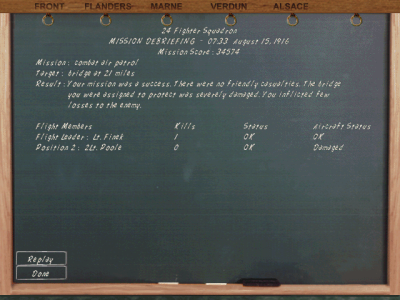 FRONT FLANDERS MARNE VERDUN ALSACE
24 Fighter Squadron
MISSION DEBRIEFING - 07:33 August 15, 1916
Mission Score: 34574
Mission: combat air patrol
Target: bridge at 21 miles
Result: Your mission was a success. There were no friendly casualties. The bridge
you were assigned to protect was severely damaged. You inflicted few
losses to the enemy.
Flight Members Kills Status Aircraft Status
Flight Leader: Lt. Finek 1 OK OK
Position 2: 2Lt. Poole 0 OK Damaged
Replay
Done